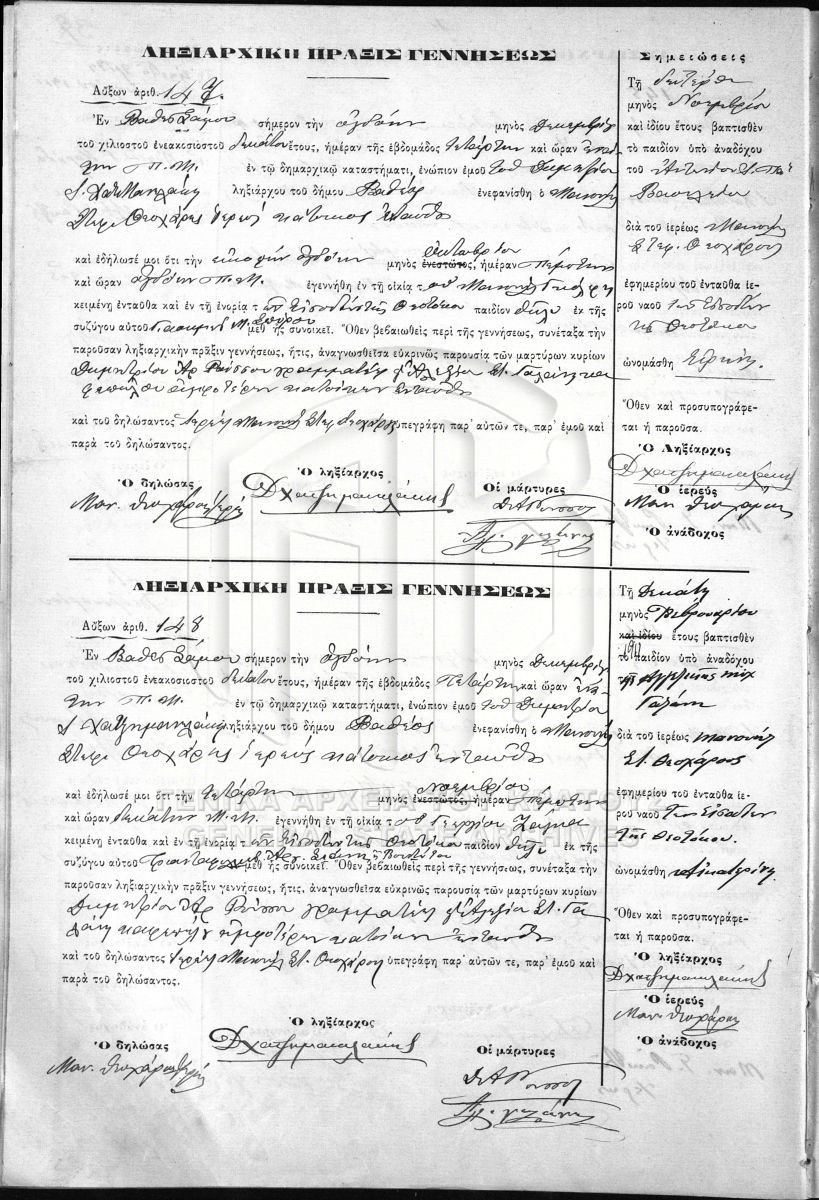 ΛΗΞΙΑΡΧΙΚΗ ΠΡΑΞΙΣ ΓΕΝΝΗΣΕΩΣ
Αὔξων ἀριθ. 147.
Ἐν Βαθεῖ Σάμου σήμερον τὴν ὀγδόην μηνὸς Δεκεμβρίου
τοῦ χιλιοστοῦ ἐνεακοσιοστοῦ δεκάτου ἔτους, ἡμέραν τῆς ἑβδομάδος τετάρτην καὶ ὥραν
Π.Μ. ἐν τῷ δημαρχικῷ καταστήματι, ἐνώπιον ἐμοῦ τοῦ Δημητρίου
ληξιάρχου τοῦ δήμου Βαθέος ἐνεφανίσθη ὁ Μανουὴλ
Στεφ. Θεοχάρης ἱερεύς κάτοικος ἐνταῦθα
καὶ ἐδήλωσέ μοι ὅτι τὴν εἰκοστήν ὀγδόην μηνὸς ἐνεστῶτος, Ὀκτωβρίου ἡμέραν πέμπτην
καὶ ὥραν ὀγδόην Π.Μ. ἐγεννήθη ἐν τῇ οἰκίᾳ τοῦ
κειμένῃ ἐνταῦθα καὶ ἐν τῇ ἐνορίᾳ τῶν Εἰσοδίων τῆς Θεοτόκου παιδίον θῆλυ ἐκ τῆς
συζύγου αὐτοῦ μεθ' ἧς συνοικεῖ. Ὅθεν βεβαιωθεὶς περὶ τῆς γεννήσεως, συνέταξα τὴν
παροῦσαν ληξιαρχικὴν πρᾶξιν γεννήσεως, ἥτις, ἀναγνωσθεῖσα εὐκρινῶς παρουσίᾳ τῶν μαρτύρων κυρίων
Δημητρίου Ἀρ. Ρούσσου γραμματέως
ἀμφοτέρων κατοίκων ἐνταῦθα
καὶ τοῦ δηλώσαντος ἱερέως Μανουὴλ Στεφ. Θεοχάρους ὑπεγράφη παρ' αὐτῶν τε, παρ' ἐμοῦ καὶ
παρὰ τοῦ δηλώσαντος.
Ὁ δηλώσας
Μαν. Θεοχάρης ἱερεύς
Ὁ ληξίαρχος
Δ Χατζημανωλάκης
Οἱ μάρτυρες
Σημειώσεις
Τῇ δευτέρᾳ
μηνὸς Νοεμβρίου
καὶ ἰδίου ἔτους βαπτισθὲν
τὸ παιδίον ὑπὸ ἀναδόχου
τοῦ
διὰ τοῦ ἱερέως Μανουὴλ
Στεφ. Θεοχάρους
ἐφημερίου τοῦ ἐνταῦθα ἱε-
ροῦ ναοῦ τῶν Εἰσοδίων
τῆς Θεοτόκου
ὠνομάσθη Εἰρήνη.
Ὅθεν καὶ προσυπογράφε-
ται ἡ παροῦσα.
Ὁ Ληξίαρχος
Δ Χατζημανωλάκης
Ὁ ἱερεύς
Μαν. Θεοχάρης
Ὁ ἀνάδοχος
ΛΗΞΙΑΡΧΙΚΗ ΠΡΑΞΙΣ ΓΕΝΝΗΣΕΩΣ
Αὔξων ἀριθ. 148
Ἐν Βαθεῖ Σάμου σήμερον τὴν ὀγδόην μηνὸς Δεκεμβρίου
τοῦ χιλιοστοῦ ἐνεακοσιοστοῦ δεκάτου ἔτους, ἡμέραν τῆς ἑβδομάδος τετάρτην καὶ ὥραν
Π.Μ. ἐν τῷ δημαρχικῷ καταστήματι, ἐνώπιον ἐμοῦ τοῦ Δημητρίου
Χατζημανωλάκη ληξιάρχου τοῦ δήμου Βαθέος ἐνεφανίσθη ὁ Μανουὴλ
Στεφ. Θεοχάρης ἱερεύς κάτοικος ἐνταῦθα
καὶ ἐδήλωσέ μοι ὅτι τὴν τετάρτην μηνὸς ἐνεστῶτος, Νοεμβρίου ἡμέραν πέμπτην
καὶ ὥραν δεκάτην Π.Μ. ἐγεννήθη ἐν τῇ οἰκίᾳ τοῦ Γεωργίου
κειμένῃ ἐνταῦθα καὶ ἐν τῇ ἐνορίᾳ τῶν Εἰσοδίων τῆς Θεοτόκου παιδίον θῆλυ ἐκ τῆς
συζύγου αὐτοῦ μεθ' ἧς συνοικεῖ. Ὅθεν βεβαιωθεὶς περὶ τῆς γεννήσεως, συνέταξα τὴν
παροῦσαν ληξιαρχικὴν πρᾶξιν γεννήσεως, ἥτις, ἀναγνωσθεῖσα εὐκρινῶς παρουσίᾳ τῶν μαρτύρων κυρίων
Δημητρίου Ἀρ. Ρούσσου γραμματέως
ἀμφοτέρων κατοίκων ἐνταῦθα
καὶ τοῦ δηλώσαντος ἱερέως Μανουὴλ Στ. Θεοχάρους ὑπεγράφη παρ' αὐτῶν τε, παρ' ἐμοῦ καὶ
παρὰ τοῦ δηλώσαντος.
Ὁ δηλώσας
Μαν. Θεοχάρης ἱερεύς
Ὁ ληξίαρχος
Δ Χατζημανωλάκης
Οἱ μάρτυρες
Τῇ δεκάτῃ
μηνὸς Φεβρουαρίου
καὶ ἰδίου ἔτους βαπτισθὲν
1911
τὸ παιδίον ὑπὸ ἀναδόχου
τῆς Ἀγγελικῆς
διὰ τοῦ ἱερέως Μανουὴλ
Στ. Θεοχάρους
ἐφημερίου τοῦ ἐνταῦθα ἱε-
ροῦ ναοῦ τῶν Εἰσοδίων
τῆς Θεοτόκου.
ὠνομάσθη Αἰκατερίνη.
Ὅθεν καὶ προσυπογράφε-
ται ἡ παροῦσα.
Ὁ ληξίαρχος
Δ Χατζημανωλάκης
Ὁ ἱερεύς
Μαν. Θεοχάρης
Ὁ ἀνάδοχος
ΓΕΝΙΚΑ ΑΡΧΕΙΑ ΤΟΥ ΚΡΑΤΟΥΣ
GENERAL STATE ARCHIVES